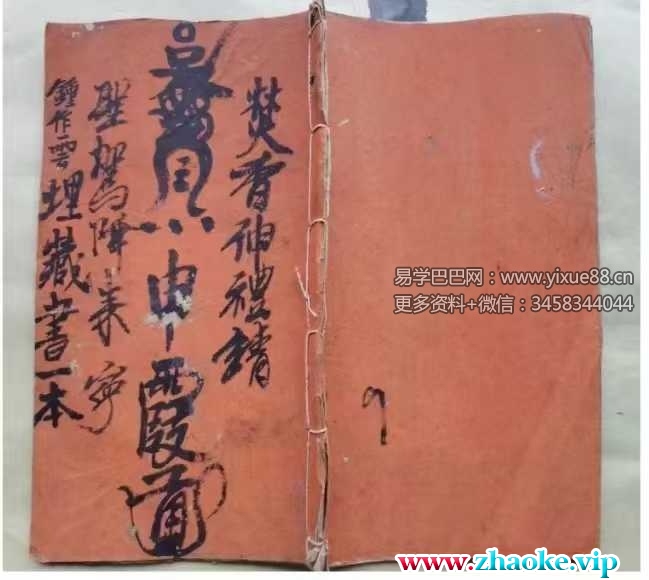 焚香伸禮請
聖駕降來寧
鍾作雲埋藏書一本
易学巴巴网：www.yixue88.cn
更多资料+微信：3458344044
9
www.zhaoke.vip